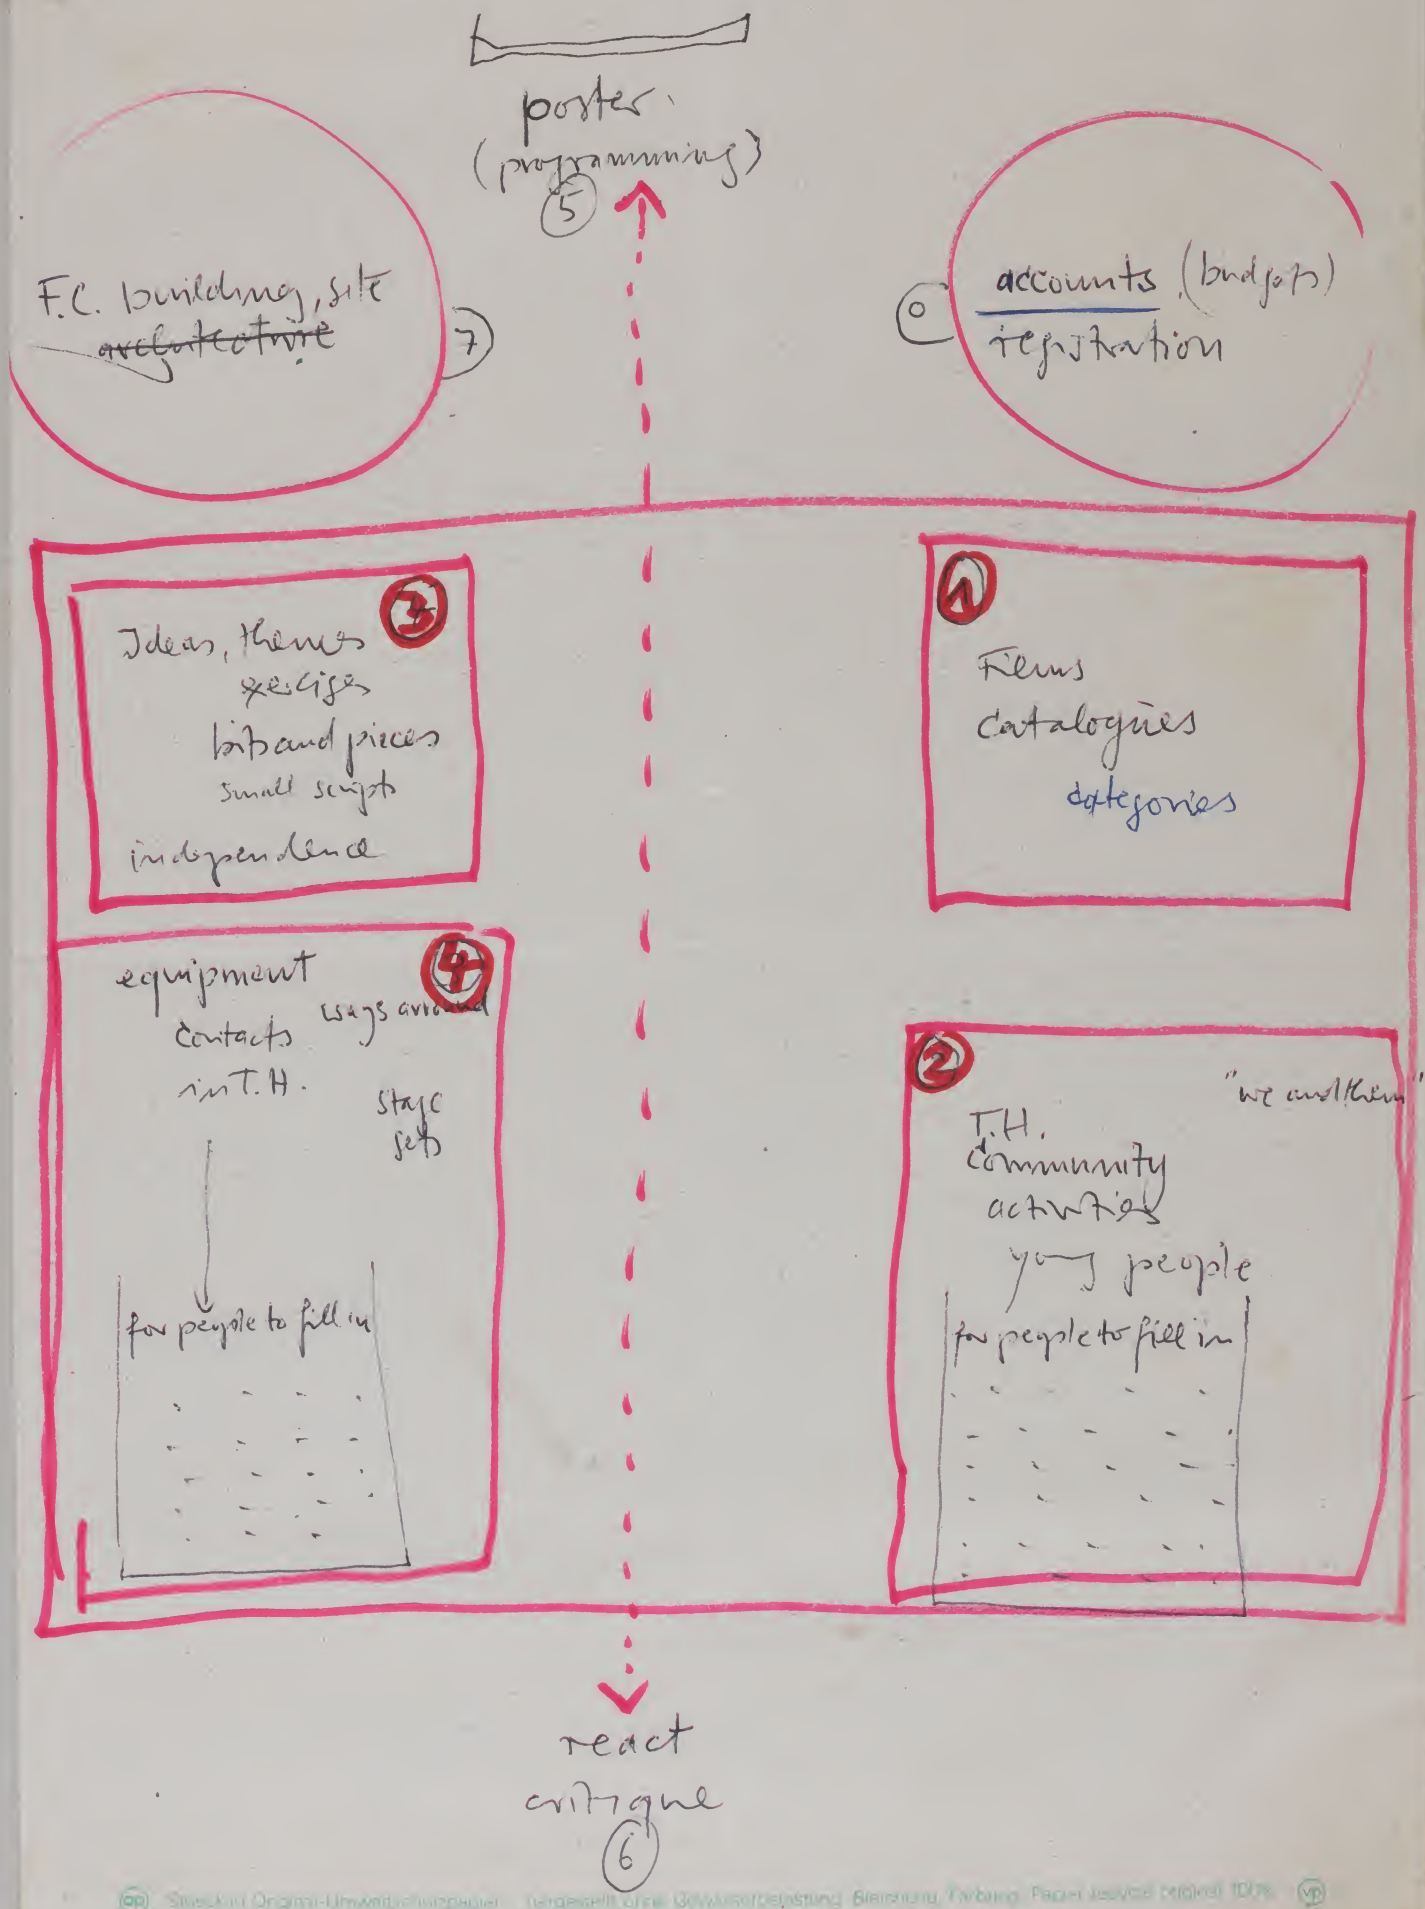 poster.
(programming)
5
F.C. building, site
architecture
7
0
accounts (budgets)
registration
3
Ideas, themes
exercises
bits and pieces
small scripts
independence
1
catalogues
categories
4
equipment
ways around
contacts
in T.H.
stage
sets
for people to fill in
2
"we and them"
T.H.
community
activities
young people
for people to fill in
react
critique
6